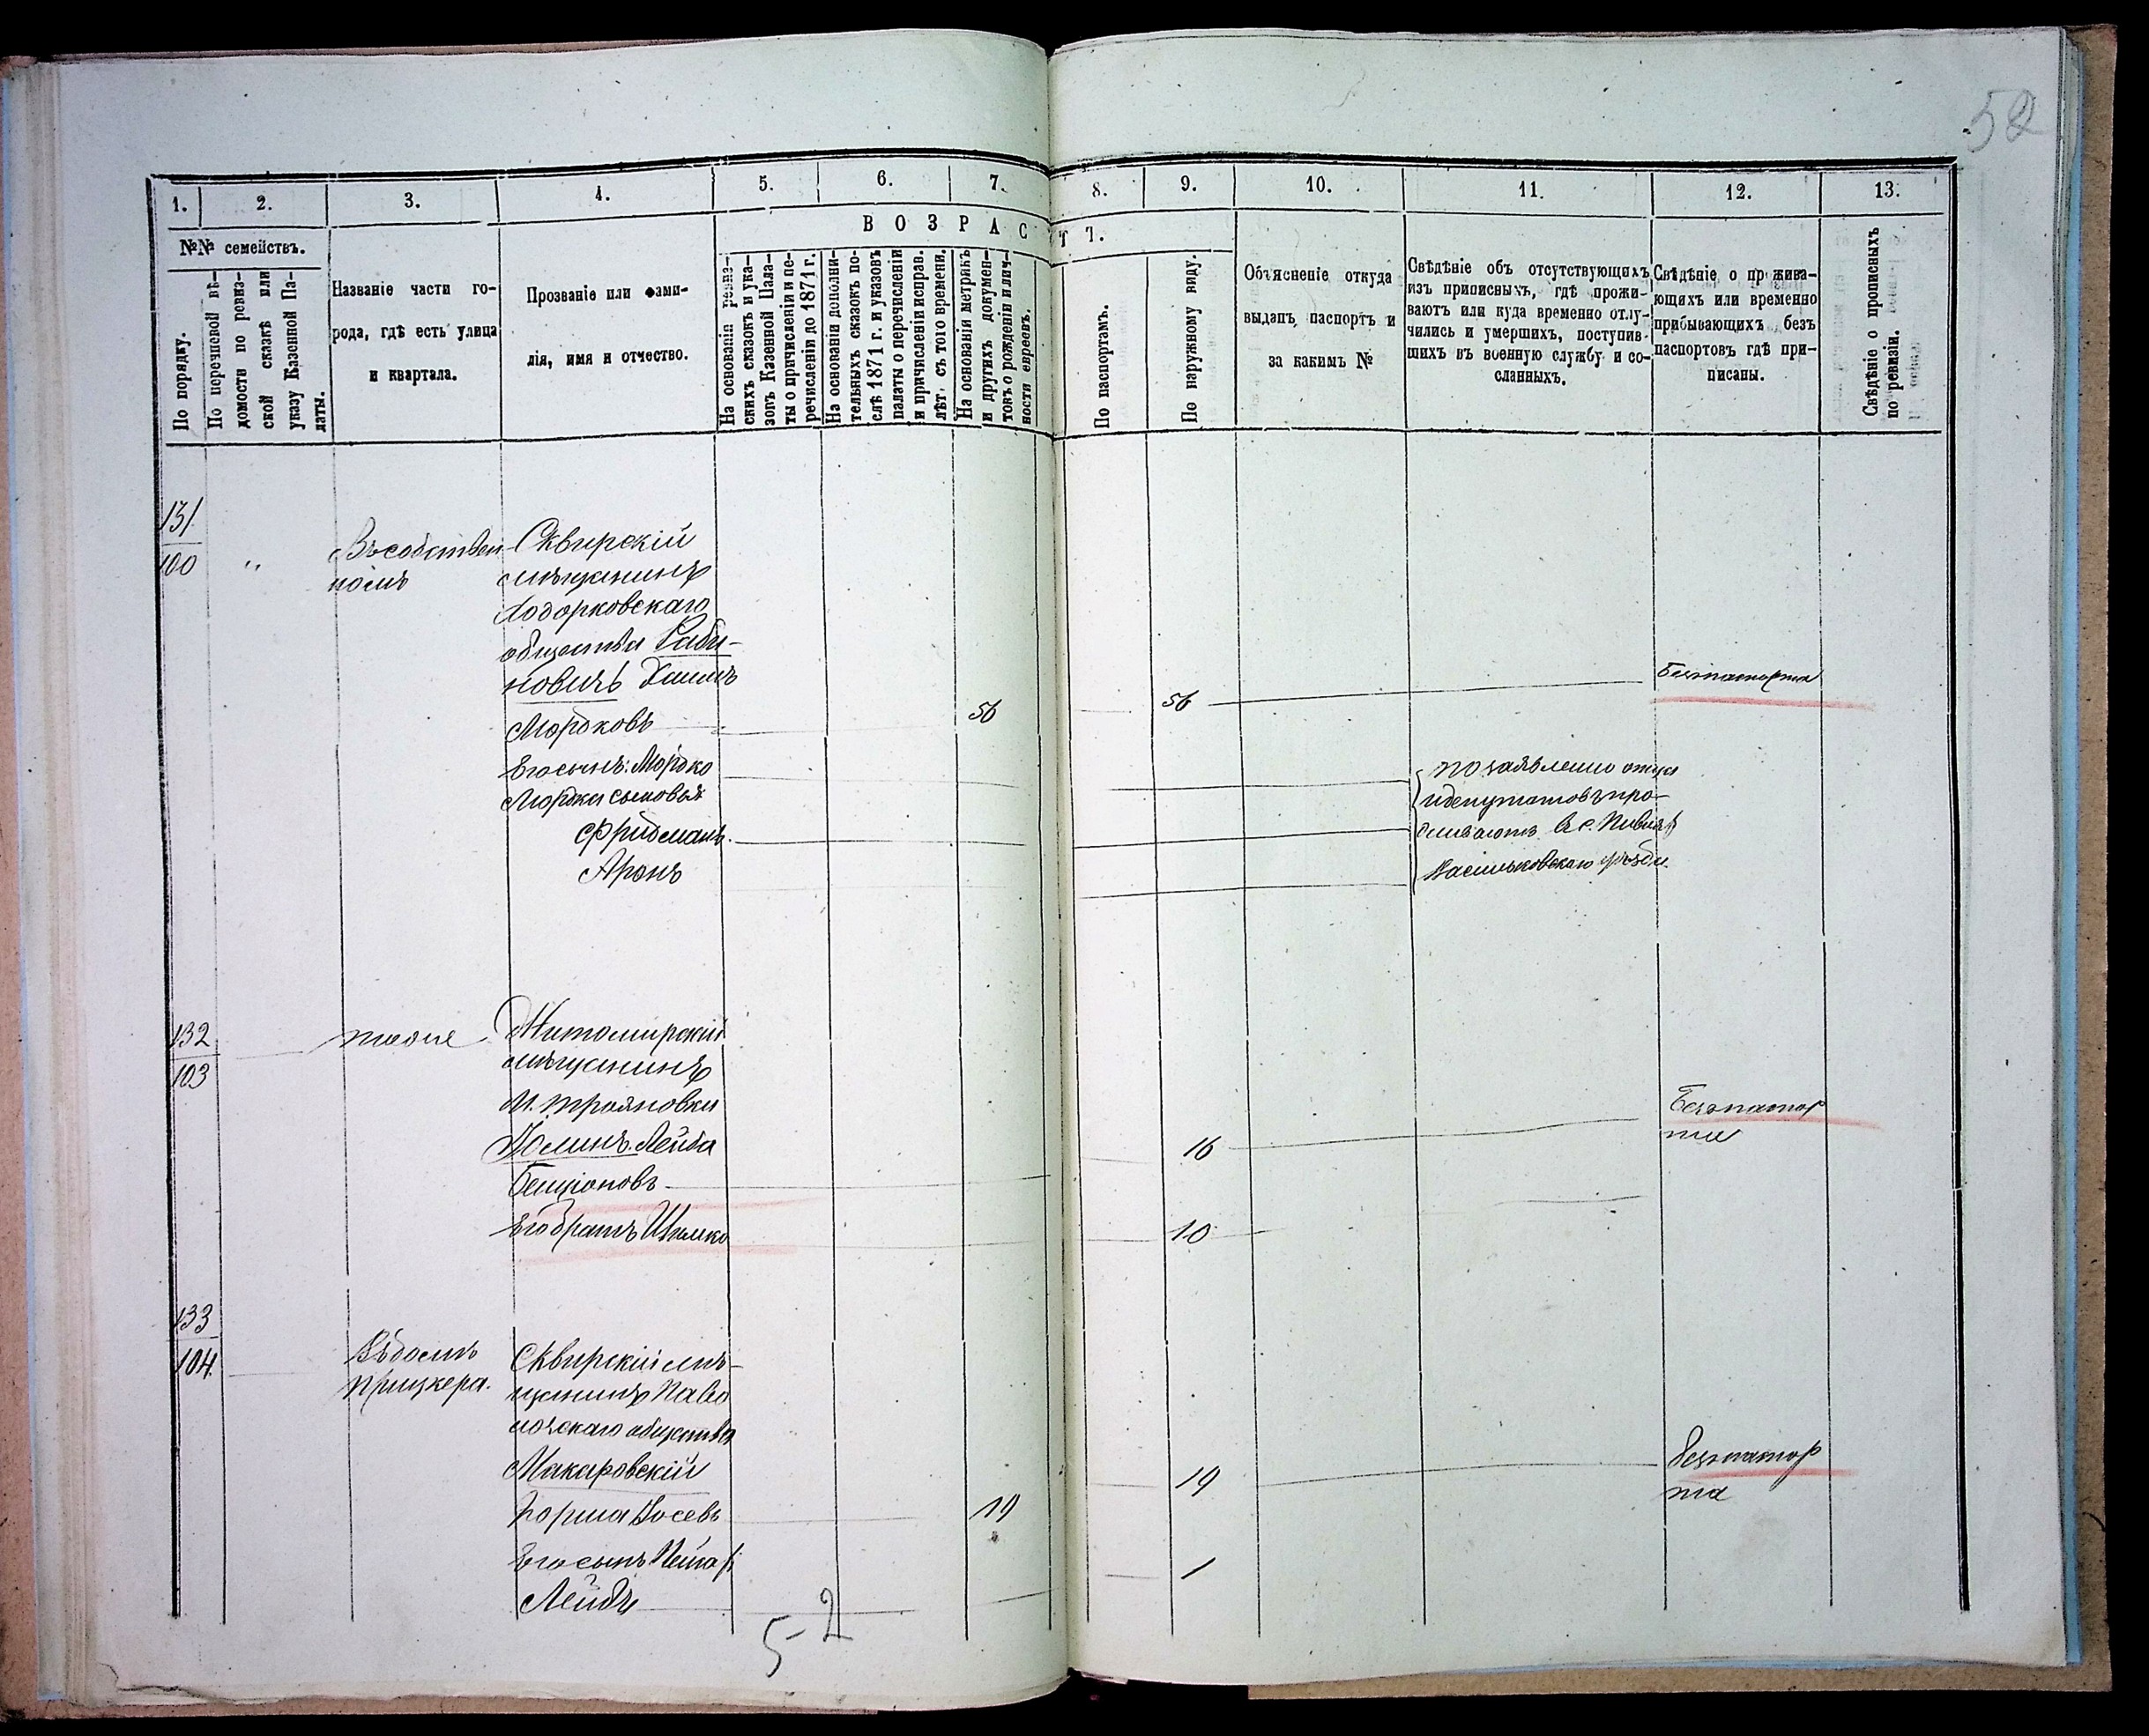 52
1. 2. 3. 4. 5. 6. 7. 8. 9. 10. 11. 12. 13.
№№ семействъ.
В О З Р А С Т Ъ.
По порядку.
По перечневой вѣ-
домости по ревиз-
ской сказкѣ или
указу Казенной Па-
латы.
Названіе части го-
рода, гдѣ есть улица
и квартала.
Прозваніе или фами-
лія, имя и отчество.
На основаніи ревиз-
скихъ сказокъ и ука-
зовъ Казенной Пала-
ты о причисленіи и пе-
речисленіи до 1871 г.
На основаніи дополни-
тельныхъ сказокъ по-
слѣ 1871 г. и указовъ
палаты о перечисленіи
и причисленіи исправ.
лѣт. съ того времени.
На основаніи метрикъ
и другихъ докумен-
товъ о рожденіи и лич-
ности евреевъ.
По паспортамъ.
По наружному виду.
Объясненіе откуда
выданъ паспортъ и
за какимъ №
Свѣдѣніе объ отсутствующихъ
изъ приписныхъ, гдѣ прожи-
ваютъ или куда временно отлу-
чились и умершихъ, поступив-
шихъ въ военную службу и со-
сланныхъ.
Свѣдѣніе о прожива-
ющихъ или временно
прибывающихъ безъ
паспортовъ гдѣ при-
писаны.
Свѣдѣніе о прописныхъ
по ревизіи.
131
100
"
Въ собствен
номъ
Сквирскій
мѣщанинъ
Ходорковскаго
общества Раби-
новичъ Хаимъ
Мордковъ
56
56
Безпаспорта
Его сынъ: Мордко
Мордки сыновья
Фридманъ.
Аронъ
по заявленію отца
и депутатовъ про-
живаютъ въ с.
Васильковскаго уѣзда.
132
103
тоже
Житомирскій
мѣщанинъ
М. Трояновки
Лейба
Бенціоновъ
16
Безпаспор
та
Его братъ Ицко
10
133
104
Въ домѣ
Прицкера.
Сквирскій мѣ-
щанинъ Паво
лочскаго общества
Макаровскій
Іосевъ
19
19
безпаспор
та
Его сынъ
Лейбъ
1
5-2